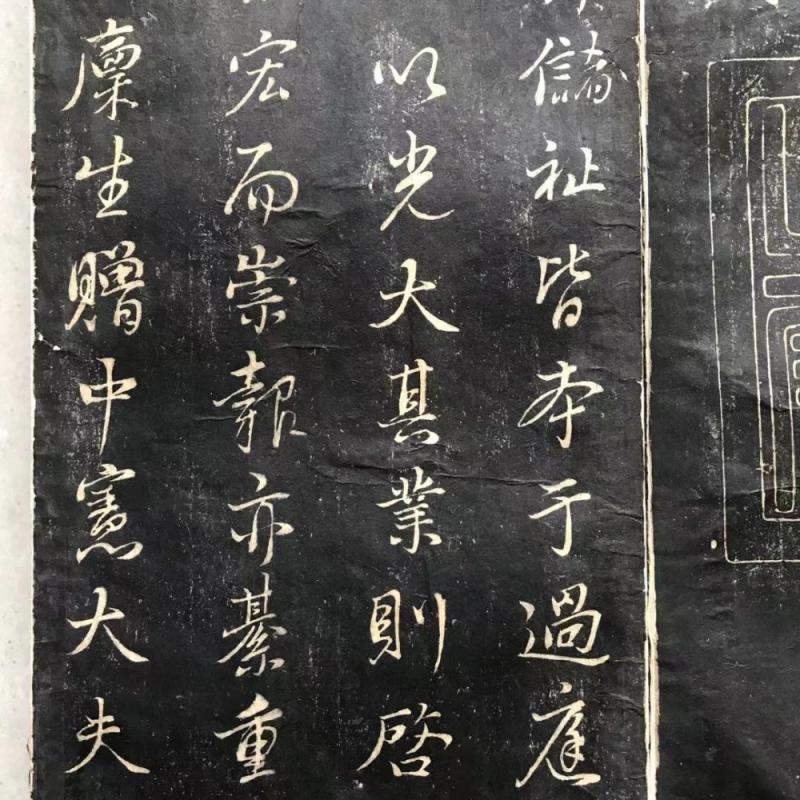 儲祉皆本于過庭
以光大其業則啓
宏而崇報亦綦重
廪生贈中憲大夫